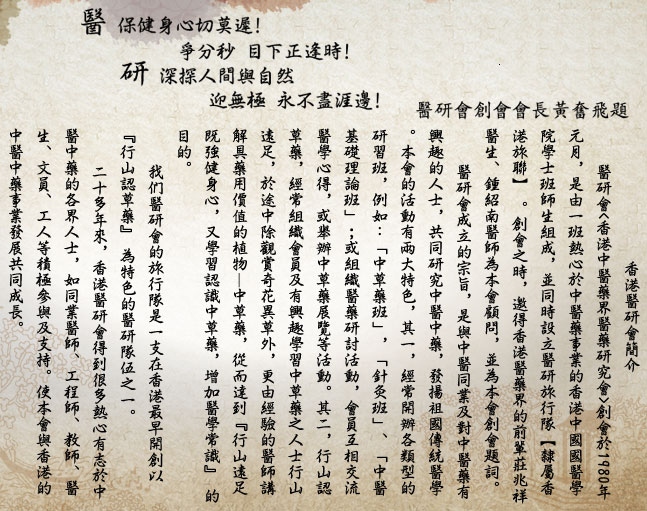 醫 保健身心切莫遲!
爭分秒 目下正逢時!
研 深探人間與自然
迎無極 永不盡涯邊!
醫研會創會會長黃奮飛題
香港醫研會簡介
醫研會<香港中醫藥界醫藥研究會>創會於1980年
元月，是由一班熱心於中醫藥事業的香港中國國醫學
院學士班師生組成，並同時設立醫研旅行隊【隸屬香
港旅聯】。創會之時，邀得香港醫藥界的前輩莊兆祥
醫生、鍾紹南醫師為本會顧問，並為本會創會題詞。
醫研會成立的宗旨，是與中醫同業及對中醫藥有
興趣的人士，共同研究中醫中藥，發揚祖國傳統醫學
。本會的活動有兩大特色，其一，經常開辦各類型的
研習班，例如：「中草藥班」，「針灸班」、「中醫
基礎理論班」；或組織醫藥研討活動，會員互相交流
醫學心得，或舉辦中草藥展覽等活動。其二，行山認
草藥，經常組織會員及有興趣學習中草藥之人士行山
遠足，於途中除觀賞奇花異草外，更由經驗的醫師講
解具藥用價值的植物—中草藥，從而達到『行山遠足
既強健身心，又學習認識中草藥，增加醫學常識』的
目的。
我們醫研會的旅行隊是一支在香港最早開創以
『行山認草藥』為特色的醫研隊伍之一。
二十多年來，香港醫研會得到很多熱心有志於中
醫中藥的各界人士，如同業醫師、工程師、教師、醫
生、文員、工人等積極參與及支持。使本會與香港的
中醫中藥事業發展共同成長。